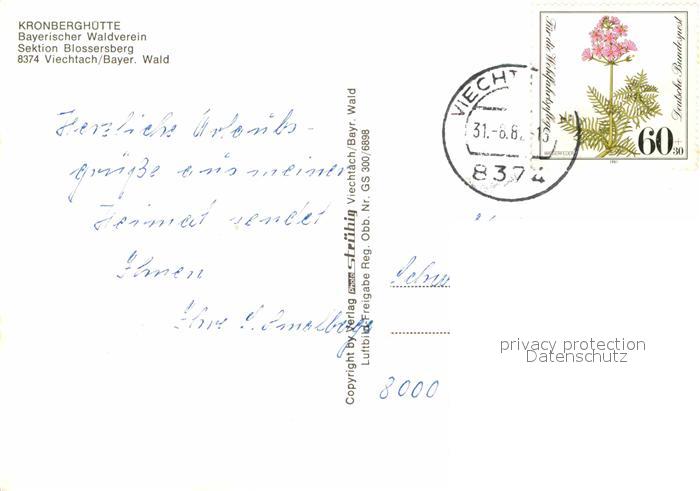 KRONBERGHÜTTE
Bayerischer Waldverein
Sektion Blossersberg
8374 Viechtach/Bayer. Wald
Herzliche Urlaubs-
grüße aus meiner
Heimat sendet
Ihnen
Ihre
Copyright by Verlag Strübig Viechtach/Bayr. Wald
Luftbild Freigabe Reg. Obb. Nr. GS 300/6898
Für die Wohlfahrtspflege
Deutsche Bundespost
60+30
WASSERFEDER
1981
VIECHT
31.-8.8
8374
8000
privacy protection
Datenschutz